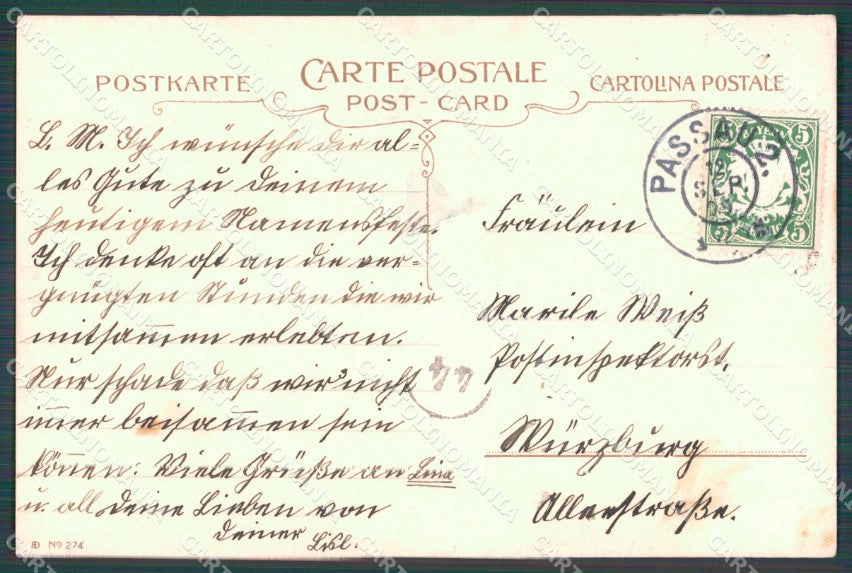 POSTKARTE
CARTE POSTALE
POST-CARD
CARTOLINA POSTALE
L. M. Ich wünsche dir al-
les Gute zu deinem
heutigem Namensfeste.
Ich denke oft an die ver-
gnügten Stunden die wir
mitsam̄en erlebten.
Nur schade daß wir's nicht
im̄er beisam̄en sein
kön̄en. Viele Grüße an Lina
u. all deine Lieben von
deiner Lisl.
Fräulein
Marile Weiß
Postinspektorst.
Würzburg
Allerstraße.
PASSAU 2.
12
SEP.
5
5
5
44
No 274
CARTOLINOMANIA